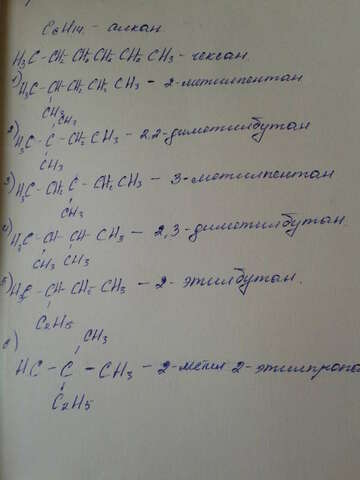 C6H14 - алкан
H3C - CH2 - CH2 CH2 CH2 CH3 - гексан
1) H3C - CH - CH2 CH2 CH3 - 2-метилпентан
CH3
CH3
2) H3C - C - CH2 CH3 - 2,2-диметилбутан
CH3
3) H3C - CH2 - C - CH2 CH3 - 3-метилпентан
CH3
4) H3C - CH - CH - CH3 - 2,3-диметилбутан
CH3 CH3
5) H3C - CH - CH2 CH3 - 2-этилбутан
C2H5
CH3
6) HC - C - CH - CH3 - 2-метил 2-этилпропа
C2H5